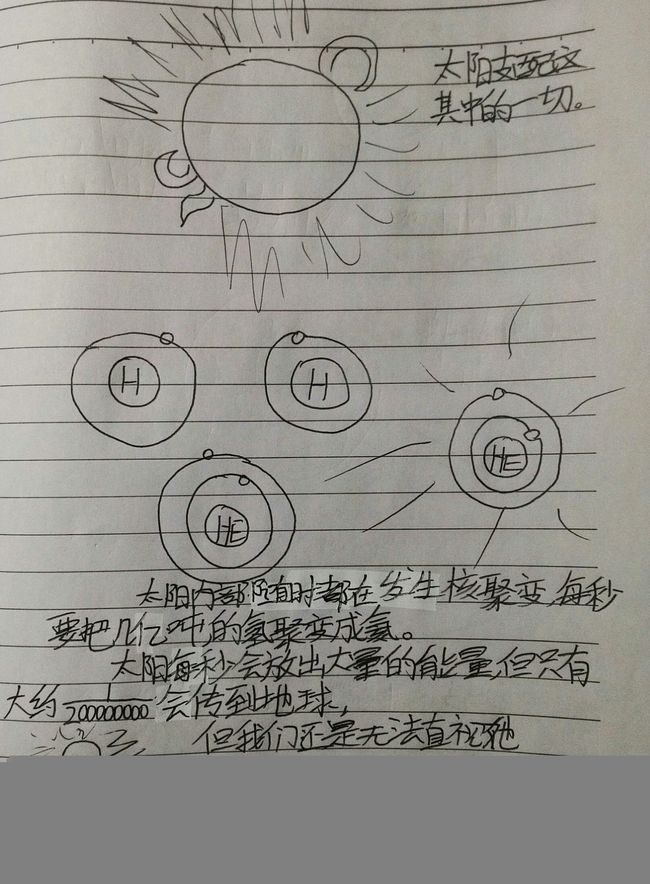 太阳支配这
其中的一切。
H
H
HE
HE
太阳内部随时都在发生核聚变,每秒
要把几亿吨的氢聚变成氦。
太阳每秒会放出大量的能量,但只有
大约1/2000000000会传到地球,
但我们还是无法直视